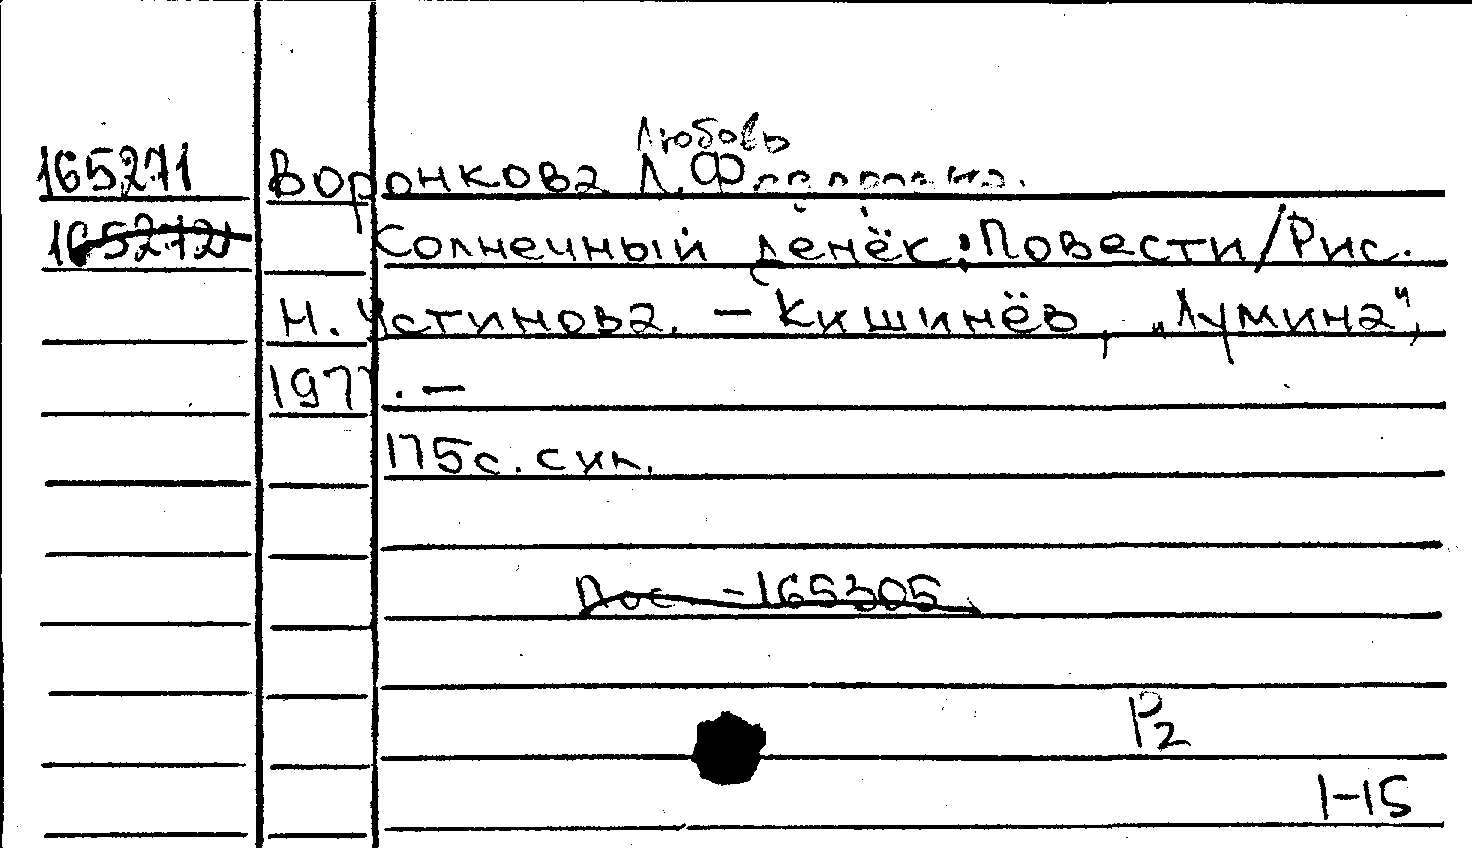 Любовь
165271 Воронкова Л. Ф
165272 Солнечный денёк: Повести/Рис.
Н. Устинова. – Кишинёв, „Лумина",
1977. –
175с. с ил.
Пос – 165305
Р2
1-15